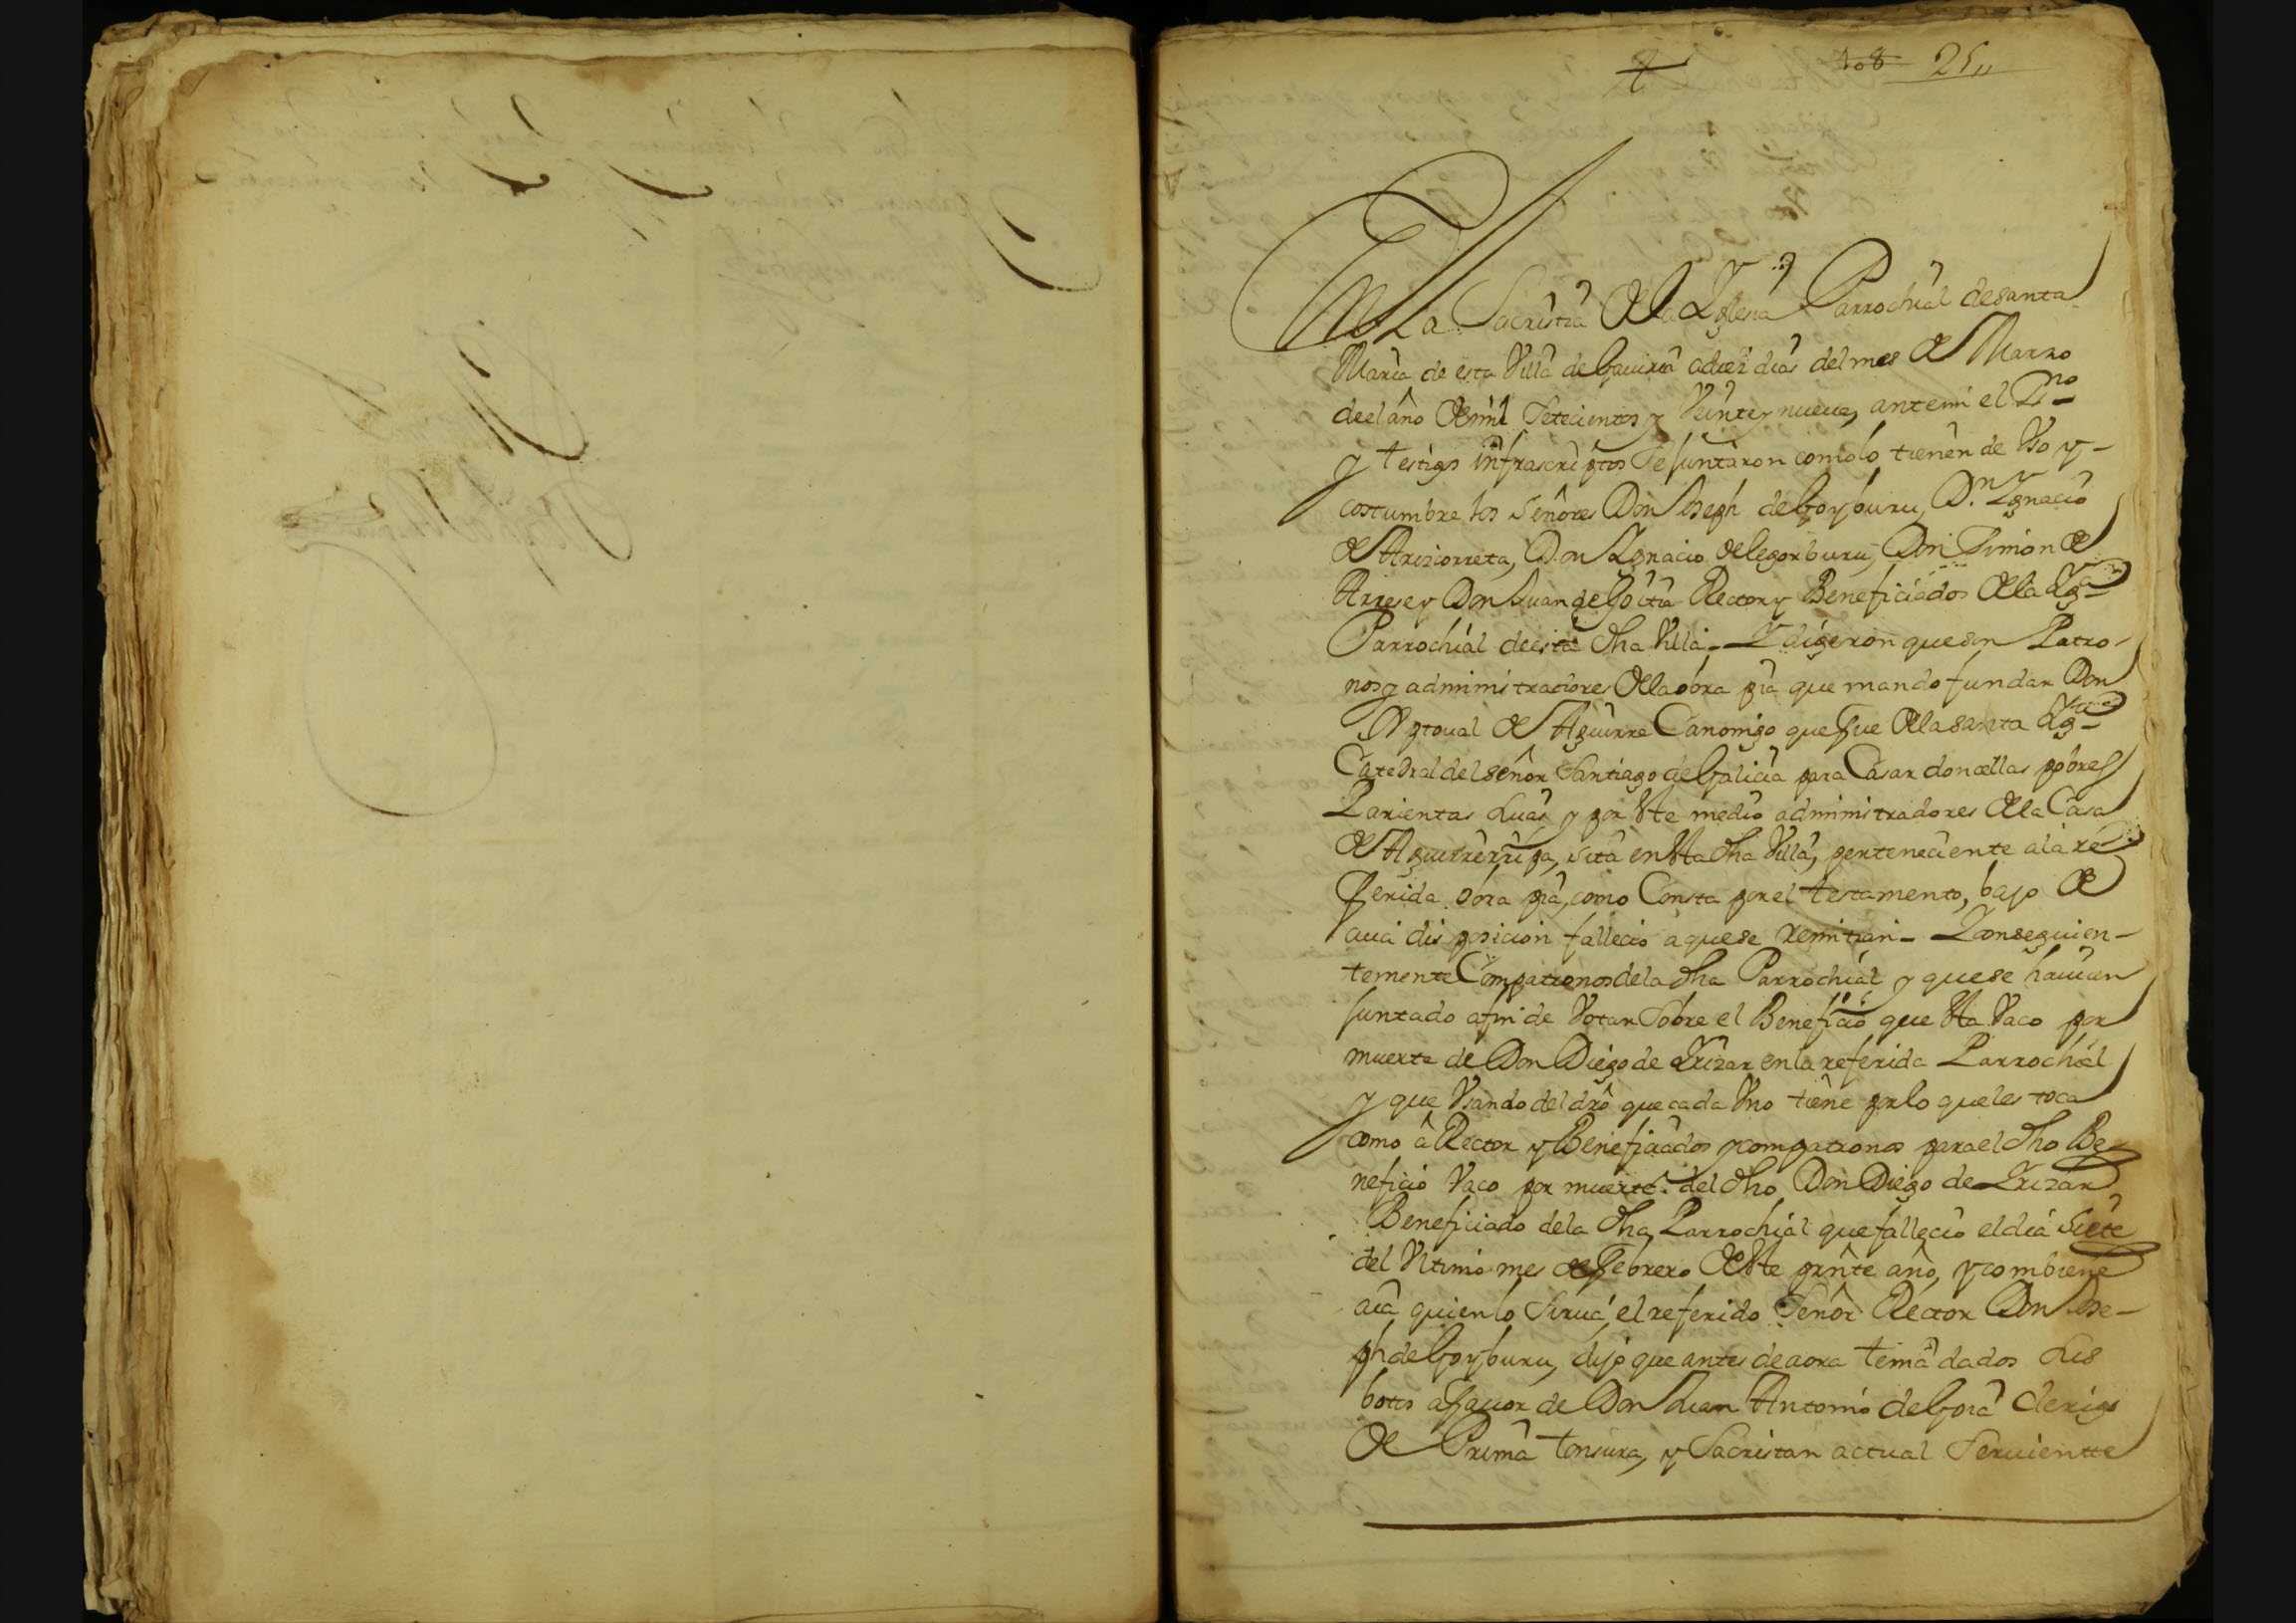 108 25
En La Sacristia de la Yglesia Parrochial de santa
Maria de esta Villa de Gauiria a diez dias del mes de Marzo
de el año de mil Setecientos y Veinte y nueue, ante mi el Sno
y testigos infrascriptos se Juntaron como lo tienen de Vso y
costumbre los señores Don Joseph de Goyburu, Dn. Ygnacio
de Arizcorreta, Don Ygnacio de Legorburu, Don Simon de
Arrese y Don Juan de Goitia Rector y Beneficiados de la Yga
Parrochial de esta dha Villa - Y digeron que son Patro-
nos y administradores de la obra pia que mando fundar Don
Xptoual de Aguirre Canonigo que fue de la santa Yga
Catedral del señor Santiago de Galicia para Casar doncellas pobres
Parientas suias y por este medio administradores de la Casa
de Aguirrerripa, sita en esta dha Villa, perteneciente a la re
ferida obra pia, como Consta por el testamento, bajo de
cuia disposicion fallecio a que se remitian - Y conseguien-
temente Compatronos de la dha Parrochial y que se hauian
Juntado a fin de Votar sobre el Beneficio que esta Vaco por
muerte de Don Diego de Yrizar en la referida Parrochial
y que Vsando del dro que cada Vno tiene por lo que les toca
como a Rector y Beneficiados y compatronos para el dho Be-
neficio Vaco por muerte del dho Don Diego de Yrizar
Beneficiado de la dha Parrochial que fallecio el dia siete
del Vltimo mes de Febrero de este prnte año, y combiene
aia quien lo sirua, el referido Señor Rector Don Jose-
ph de Goyburu, dijo que antes de aora tenia dados sus
botos a fauor de Don Juan Antonio de Goia clerigo
de Prima tonsura, y Sacristan actual Seruientte